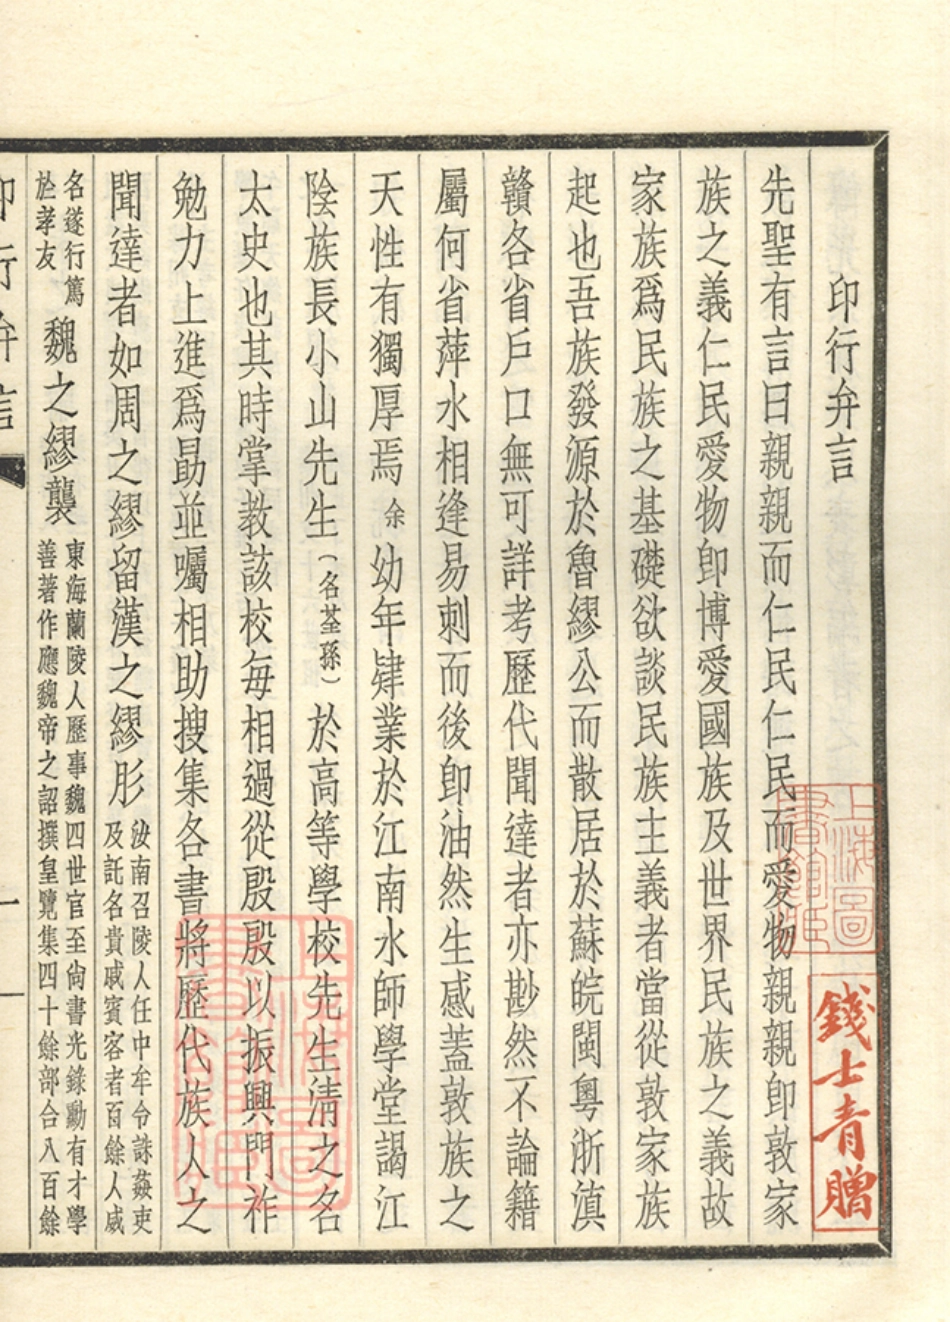 印行弁言
先聖有言曰親親而仁民仁民而愛物親親卽敦家
族之義仁民愛物卽博愛國族及世界民族之義故
家族爲民族之基礎欲談民族主義者當從敦家族
起也吾族發源於魯繆公而散居於蘇皖閩粵浙滇
贛各省戶口無可詳考歷代聞達者亦尠然不論籍
屬何省萍水相逢易刺而後卽油然生感蓋敦族之
天性有獨厚焉余幼年肄業於江南水師學堂謁江
陰族長小山先生(名荃孫)於高等學校先生清之名
太史也其時掌教該校每相過從殷殷以振興門祚
勉力上進爲勗並囑相助搜集各書將歷代族人之
聞達者如周之繆留漢之繆肜
汝南召陵人任中牟令誅姦吏
及託名貴戚賓客者百餘人威
名遂行篤
於孝友
魏之繆襲
東海蘭陵人歷事魏四世官至尙書光錄勳有才學
善著作應魏帝之詔撰皇覽集四十餘部合八百餘
印行弁言
一
上海圖書館藏
錢士青贈
上海圖書館藏